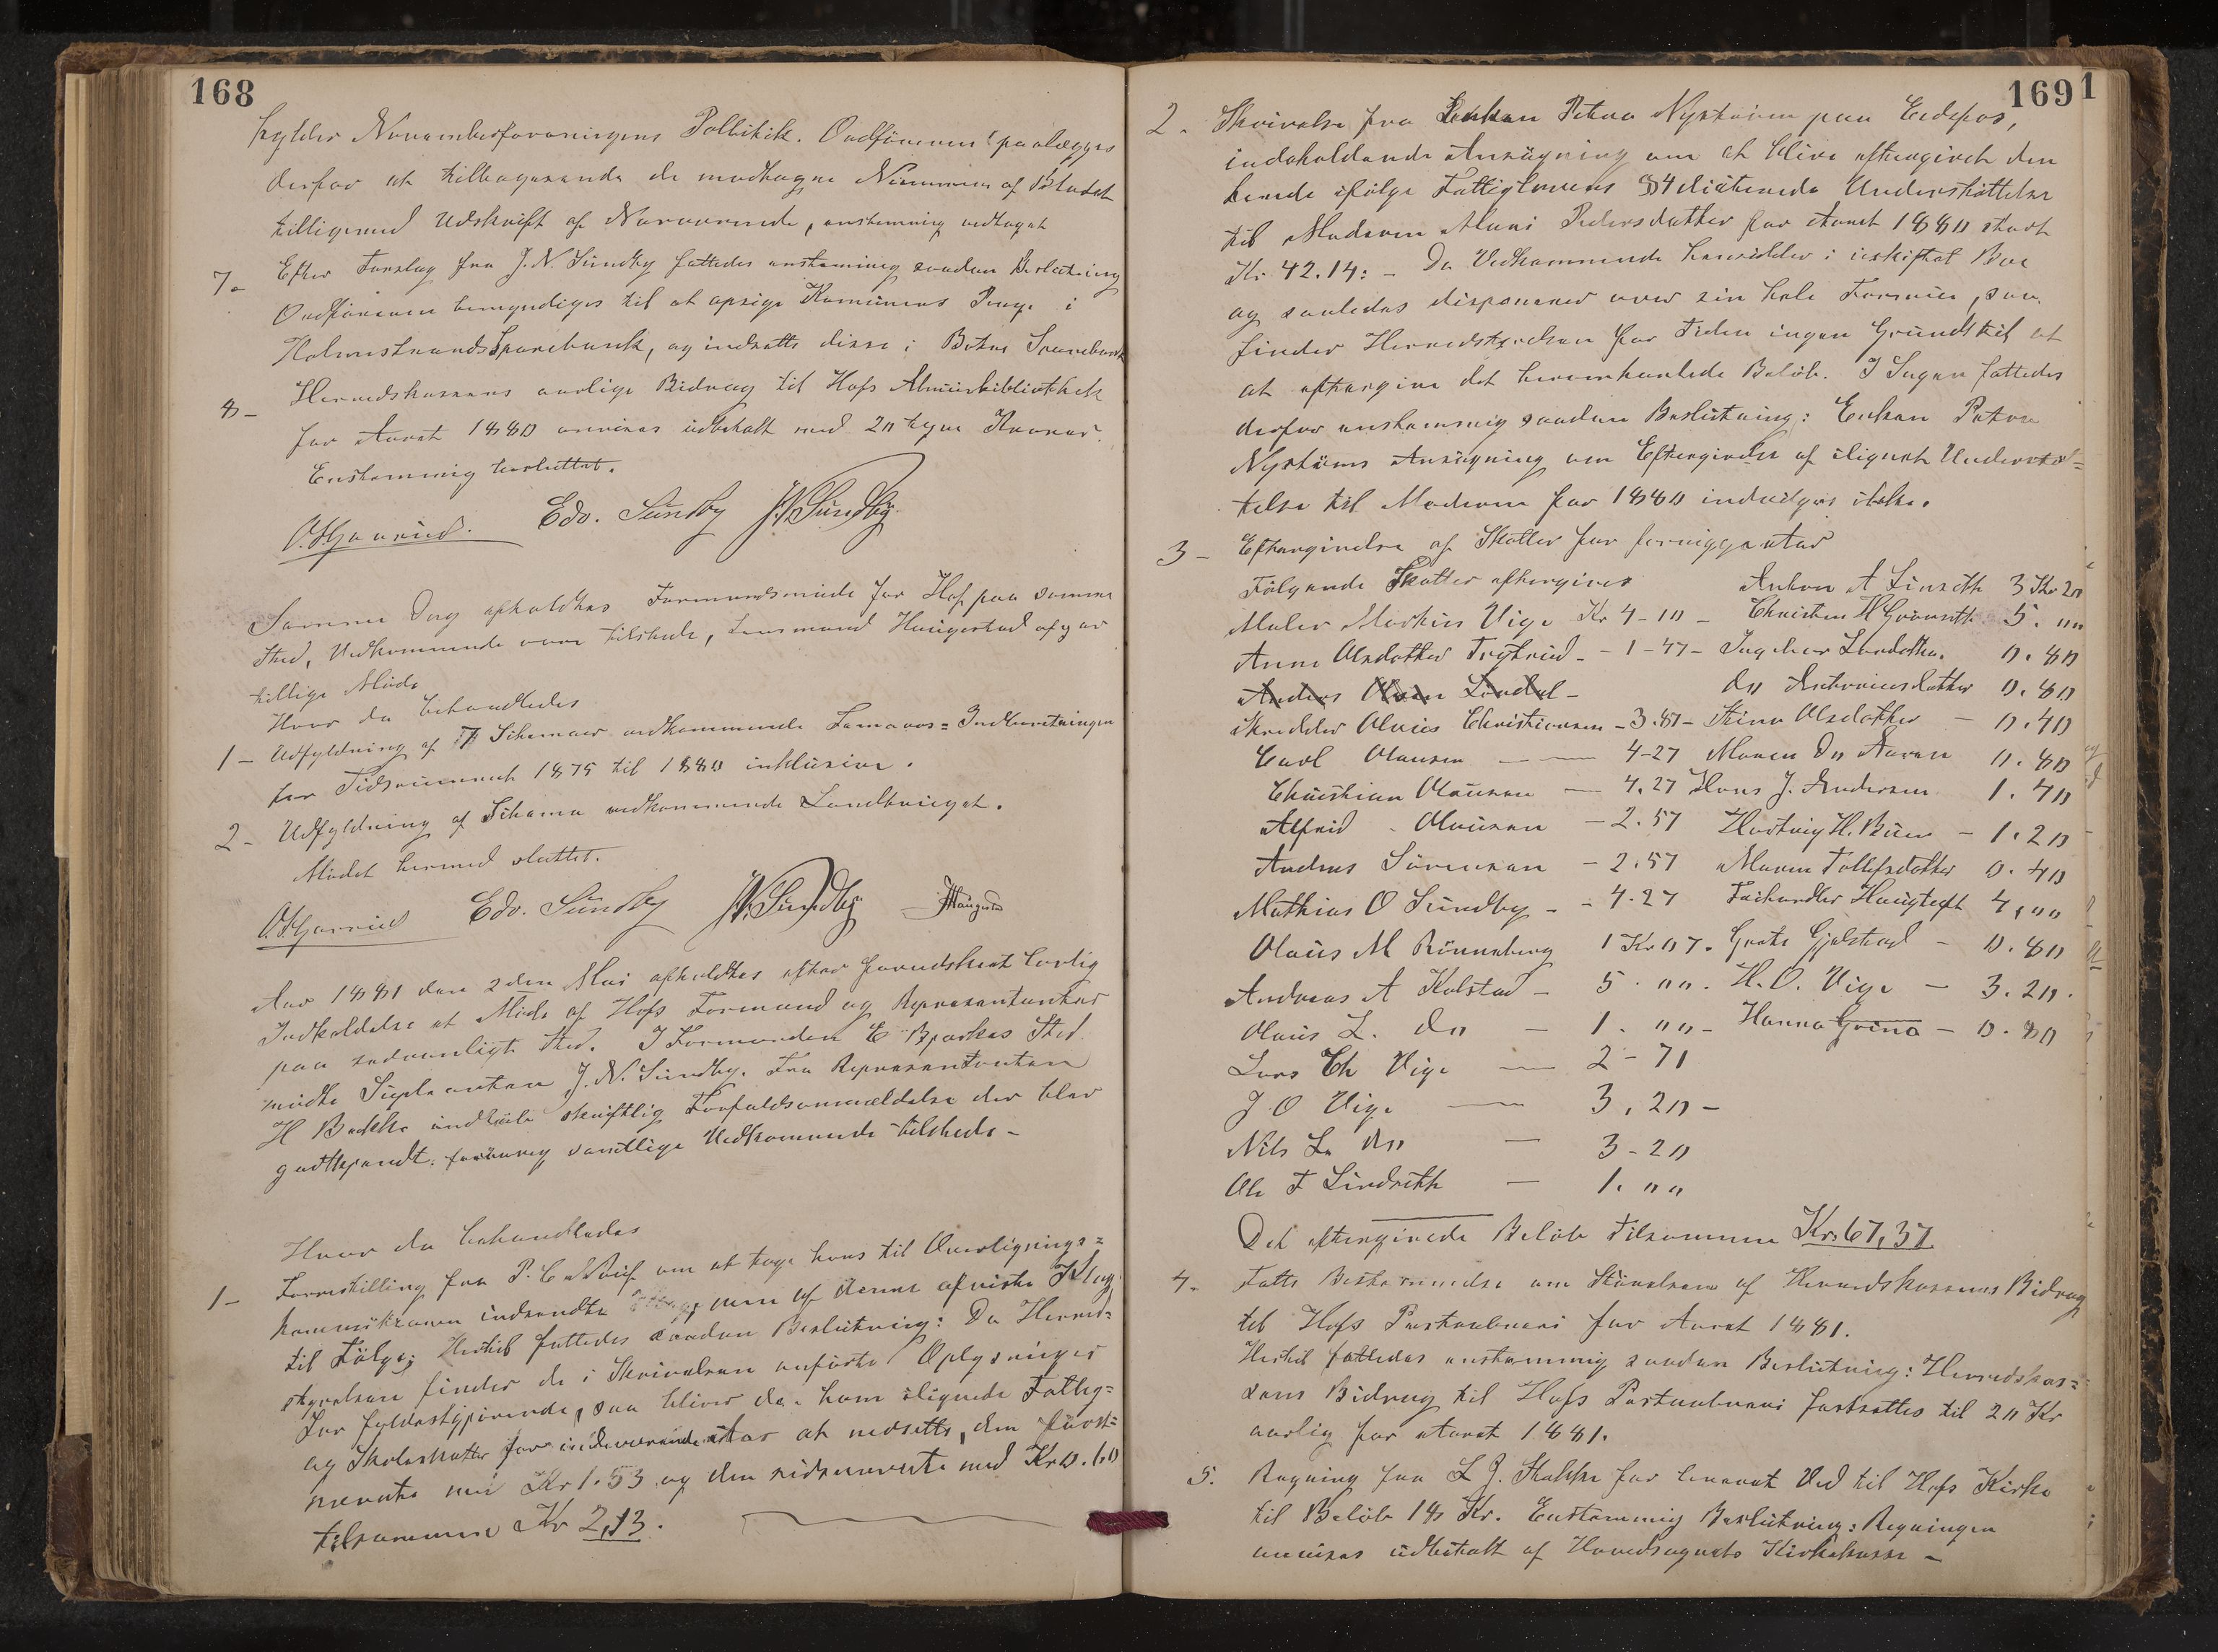 168
hylder Novemberforeningens Politik. Ordföreren paalægges
derfor at tilbagesende de modtagne Numeren af Bladet
tilligemed Udskrift af Nærværende, enstemmig vedtaget
7. Efter Forslag fra J. N. Sundby fattedes enstemmig saadan Beslutning
Ordföreren bemyndiges til at opsige Komunens Penge i
Holmestrands Sparebank, og indsætte disse i Botne Sparebank
8 - Herredskassens aarlige Bidrag til Hofs Almuebibliothek
for Aaret 1880 anvises udbetalt med 20 tyve Kroner.
Enstemmig besluttet.
Edv. Sundby J N Sundby
Samme Dag afholdtes Formandsmöde for Hof paa samme
Sted, Vedkommende vare tilstede, Lensmand Haugestad afgav
tillige Möde
Hvor da behandledes
1 - Udfyldning af Schemaer vedkommende Femaars=Indberetningen
for Tidsrummet 1875 til 1880 inklusive.
2 - Udfyldning af Schema vedkommende Landbruget.
Mödet hermed sluttet.
Edv. Sundby J N Sundby
Aar 1881 den 2den Mai afholdtes efter forudskeet lovlig
Indkaldelse et Möde af Hofs Formænd og Repræsentanter
paa sædvanligt Sted. I Formanden E Bjerkes Sted
mödte Supleanten J. N. Sundby. Fra Repræsentanten
H Bakke indløb skriftlig Forfaldsanmældelse der blev
godtkjendt. forövrig samtlige Vedkommende tilstede -
Hvor da behandledes
1 - Forestilling fra P. C. om at tage hans til Overlignings=
kommissionen indsendte men af denne afviste Klage
til Følge; Hertil fattedes saadan Beslutning: Da Herreds=
styrelsen finder de i Skrivelsen anførte Oplysninger
for fyldestgjørende, saa bliver den ham ilignede Fattig=
og Skoleskatter for indeværende Aar at nedsætte, den först=
nævnte med Kr 1.53 og den sidstnævnte med Kr 0.60
tilsammen Kr 2,13.
169 1
2. Skrivelse fra Enken Petra Nyström paa Eidsfos,
indeholdende Ansögning om at blive eftergivet den
hende ifölge Fattiglovens § 4 ilignede Understöttelse
til Moderen Mari Pedersdatter for Aaret 1880 stort
Kr. 42.14: - Da Vedkommende hensidder i uskiftet Boe
og saaledes disponerer over sin hele Formue, saa
finder Herredstyrelsen for Tiden ingen Grund til at
at eftergive det heromhandlede Belöb. I Sagen fattedes
derfor enstemmig saadan Beslutning: Enken Petra
Nyströms Ansögning om Eftergivelse af ilignet Understöt=
telse til Moderen for 1880 indvilges ikke.
3 - Eftergivelse af Skatter for forrige Aar
Følgende Skatter eftergives Anton A Linseth 3 Kr 20
Maler Martin Vige Kr 4-10 - Christen H Grönseth 5. 00
Anne Olsdatter - 1-47 - Ingeborg Larsdatter 0.80
Anders Olsen Lindal - do Andreasdatter 0.80
Skredder Olaus Christiansen - 3.87 - Stine Olsdatter - 0.40
Carl Olausen - 4-27 Maren do Aaren 0.80
Christian Olausen - 4.27 Hans J. Andersen 1.40
Alfred Olausen - 2.57 Hartvig H. Buen - 1.20
Andreas Sörensen - 2.57 Maren Tollefsdatter 0.40
Mathias O Sundby - 4.27 Fæhandler Haugtoft 4,00
Olaus M Rönneberg 1 Kr 07. Grete Gjelstad - 0.80
Andreas A Kolstad - 5. 00. H. O. Vige - 3.20.
Olaus L. do - 1. 00 - Hanna Grina - 0.80
Lars Ch Vige - 2-71
J O Vige - 3.20 -
Nils L. do - 3-20
Ole F Lindseth - 1. 00
Det eftergivede Belöb tilsammen Kr. 67,37
4. Fatte Bestemmelse om Störrelsen af Herredskassens Bidrag
til Hofs Postaabneri for Aaret 1881.
Hertil fattedes enstemmig saadan Beslutning: Herredskas=
sens Bidrag til Hofs Postaabneri fastsættes til 20 Kr
aarlig for Aaret 1881.
5. Regning fra L J. Stakke for leveret Ved til Hofs Kirke
til Belöb 18 Kr. Enstemmig Beslutning: Regningen
anvises udbetalt af Hovedsognets Kirkekasse -